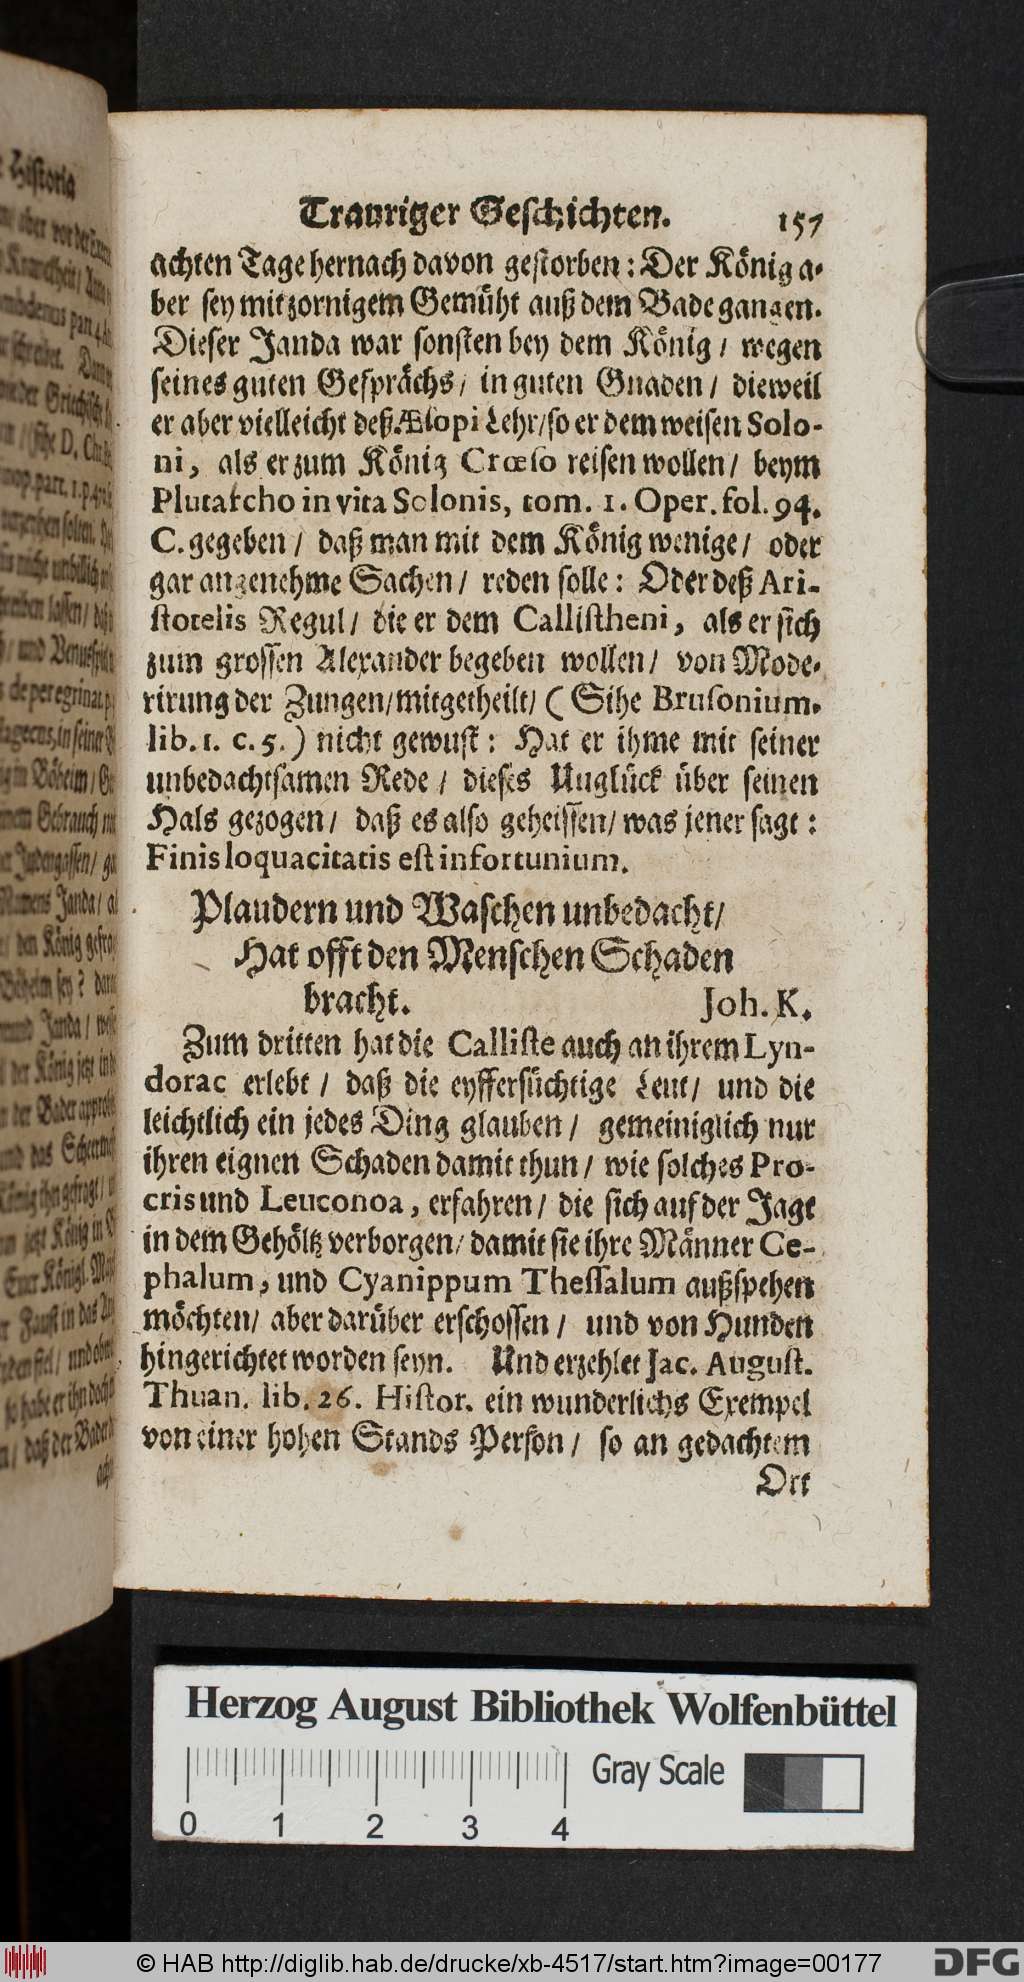 Trauriger Geschichten. 157
achten Tage hernach davon gestorben: Der König a-
ber sey mit zornigem Gemüht auß dem Bade gangen.
Dieser Janda war sonsten bey dem König / wegen
seines guten Gesprächs / in guten Gnaden / dieweil
er aber vielleicht deß Æsopi Lehr / so er dem weisen Solo-
ni, als er zum König Crœso reisen wollen / beym
Plutarcho in vita Solonis, tom. 1. Oper. fol. 94.
C. gegeben / daß man mit dem König wenige / oder
gar angenehme Sachen / reden solle: Oder deß Ari-
stotelis Regul / die er dem Callistheni, als er sich
zum grossen Alexander begeben wollen / von Mode-
rirung der Zungen / mitgetheilt / (Sihe Brusonium.
lib. 1. c. 5.) nicht gewust: Hat er ihme mit seiner
unbedachtsamen Rede / dieses Unglück über seinen
Hals gezogen / daß es also geheissen / was jener sagt:
Finis loquacitatis est infortunium.
Plaudern und Waschen unbedacht /
Hat offt den Menschen Schaden
bracht. Joh. K.
Zum dritten hat die Calliste auch an ihrem Lyn-
dorac erlebt / daß die eyffersüchtige Leut / und die
leichtlich ein jedes Ding glauben / gemeiniglich nur
ihren eignen Schaden damit thun / wie solches Pro-
cris und Leuconoa, erfahren / die sich auf der Jagt
in dem Gehöltz verborgen / damit sie ihre Männer Ce-
phalum, und Cyanippum Thessalum außspehen
möchten / aber darüber erschossen / und von Hunden
hingerichtet worden seyn. Und erzehlet Jac. August.
Thuan. lib. 26. Histor. ein wunderlichs Exempel
von einer hohen Stands Person / so an gedachtem
Ort
Herzog August Bibliothek Wolfenbüttel
Gray Scale
0 1 2 3 4
© HAB http://diglib.hab.de/drucke/xb-4517/start.htm?image=00177
DFG